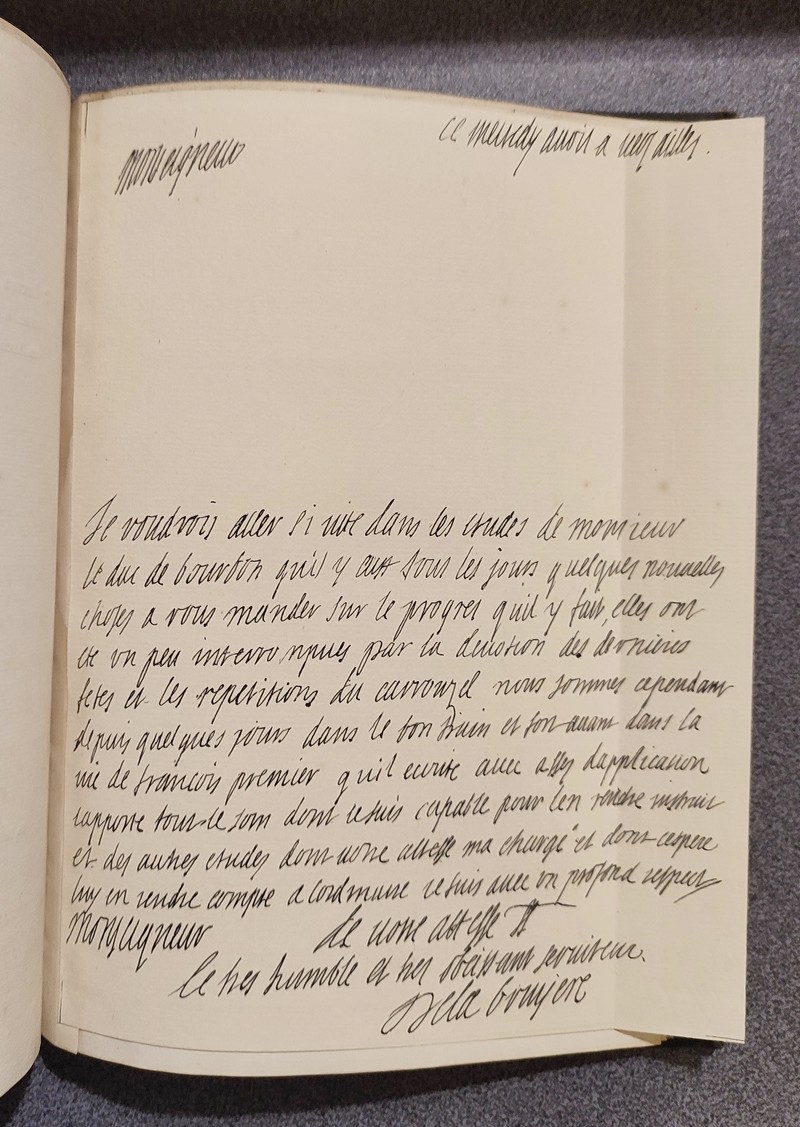 monseigneur
ce mercredy au soir a versailles.
Je voudrois aller si viste dans les etudes de monsieur
le duc de bourbon qu'il y eust tous les jours quelques nouvelles
choses a vous mander sur le progres qu'il y fait, elles ont
ete un peu interrompues par la deuotion des dernieres
fetes et les repetitions du carrouzel nous sommes cependant
depuis quelques jours dans le bon train et fort auant dans la
uie de francois premier qu'il ecoute auec asses dapplication
iapporte tout le soin dont ie suis capable pour l'en rendre instruit
et des autres etudes dont uotre altesse ma chargé et dont iespere
luy en rendre compte a lordinaire ie suis auec un profond respect
Monseigneur
de uotre altesse
le tres humble et tres obeissant seruiteur.
Dela bruyere